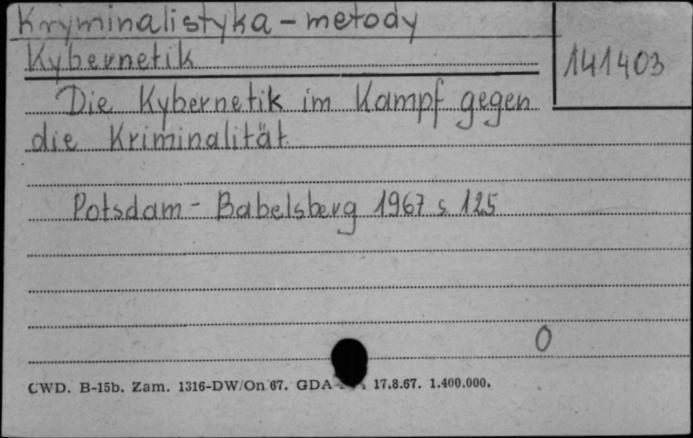 Kryminalistyka - metody
Kybernetik
141403
Die Kybernetik im Kampf gegen
die Kriminalität.
Potsdam - Babelsberg 1967 s. 125
0
CWD. B-15b. Zam. 1316-DW/On 67. GDA 17.8.67. 1.400.000.